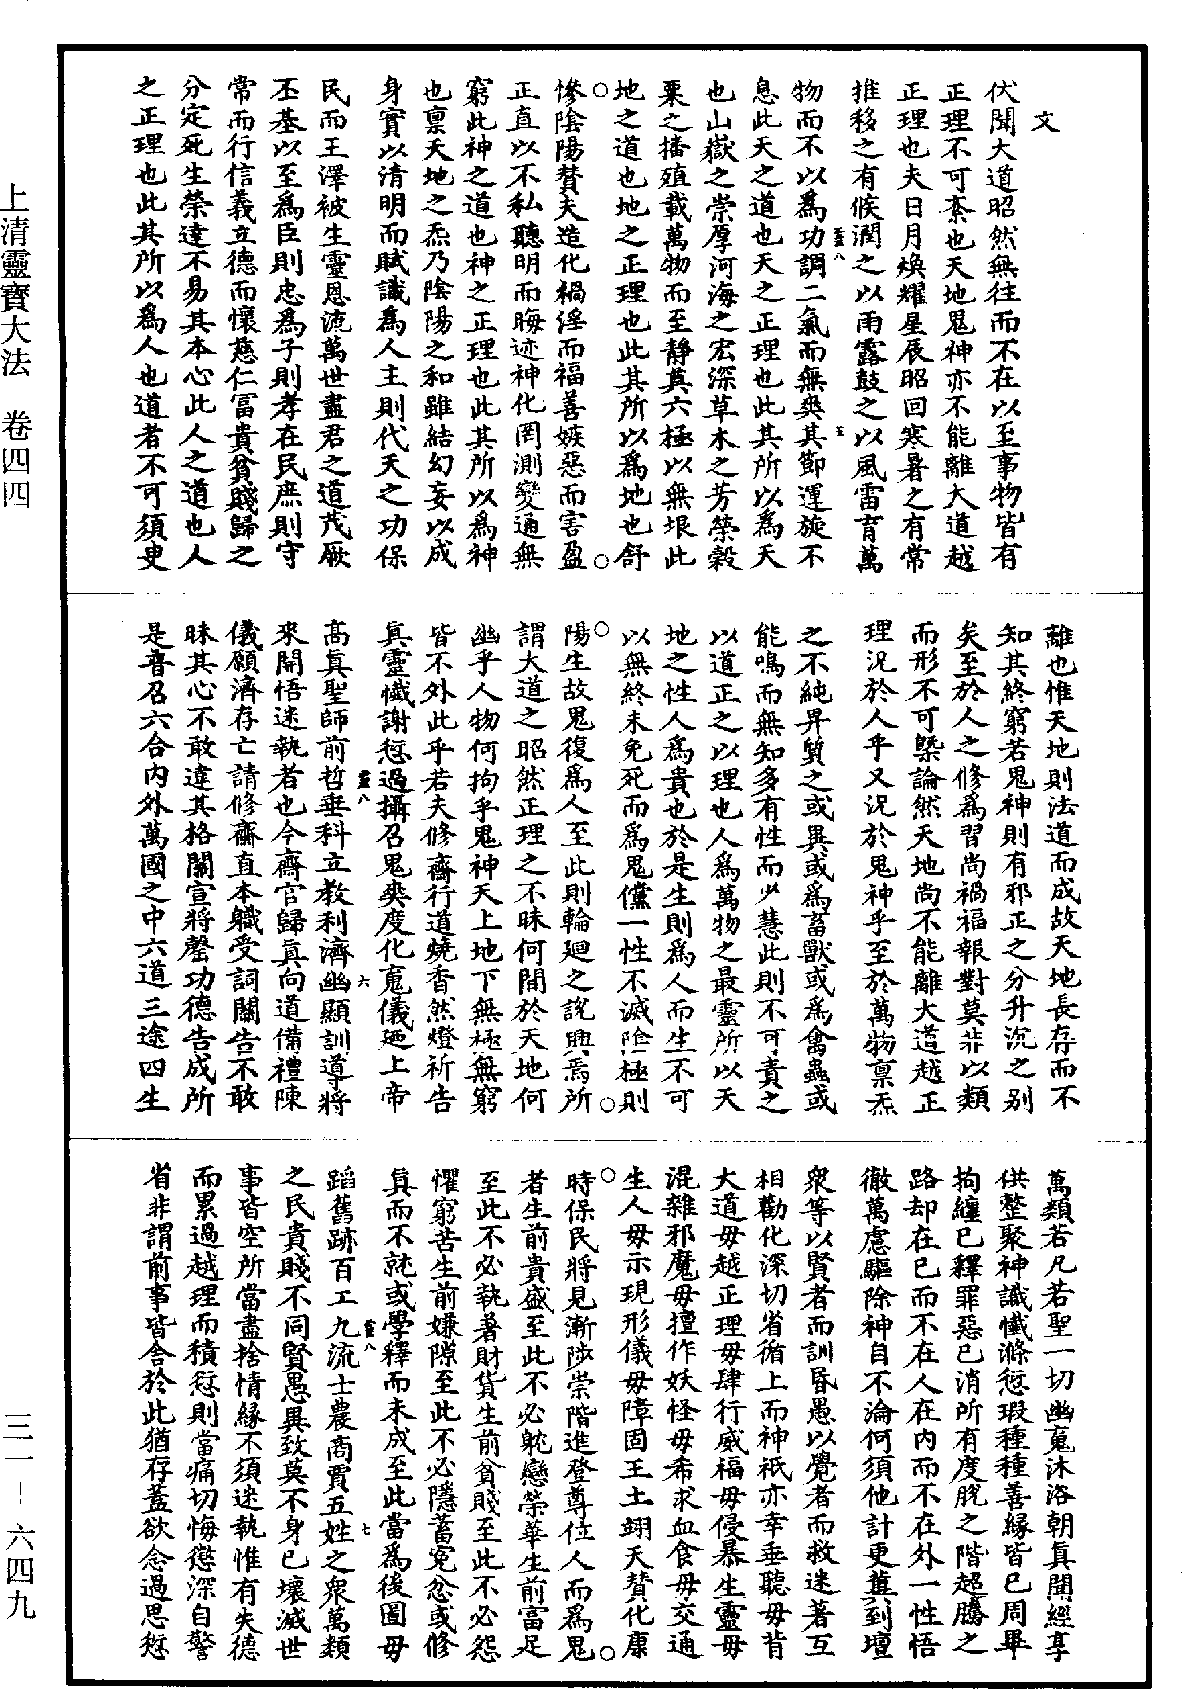 文
伏聞大道昭然無往而不在以至事物皆有
正理不可紊也天地鬼神亦不能離大道越
正理也夫日月煥耀星辰昭回寒暑之有常
推移之有候潤之以雨露鼓之以風雷育萬
物而不以為功調二氣而無爽其節運旋不
息此天之道也天之正理也此其所以為天
也山嶽之崇厚河海之宏深草木之芳榮穀
粟之播殖載萬物而至靜奠六極以無垠此
地之道也地之正理也此其所以為地也舒
慘陰陽贊夫造化禍淫而福善嫉惡而害盈
正直以不私聽明而晦迹神化罔測變通無
窮此神之道也神之正理也此其所以為神
也稟天地之炁乃陰陽之和雖結幻妄以成
身實以清明而賦識為人主則代天之功保
民而王澤被生靈恩流萬世盡君之道茂厥
丕基以至為臣則忠為子則孝在民庶則守
常而行信義立德而懷慈仁富貴貧賤歸之
分定死生榮達不易其本心此人之道也人
之正理也此其所以為人也道者不可須臾
離也惟天地則法道而成故天地長存而不
知其終窮若鬼神則有邪正之分升沉之別
矣至於人之修為習尚禍福報對莫非以類
而形不可槩論然天地尚不能離大道越正
理況於人乎又況於鬼神乎至於萬物稟炁
之不純昇質之或異或為畜獸或為禽蟲或
能鳴而無知多有性而少慧此則不可責之
以道正之以理也人為萬物之最靈所以天
地之性人為貴也於是生則為人而生不可
以無終未免死而為鬼儻一性不滅陰極則
陽生故鬼復為人至此則輪廻之說興焉所
謂大道之昭然正理之不昧何間於天地何
幽乎人物何拘乎鬼神天上地下無極無窮
皆不外此乎若夫修齋行道燒香然燈祈告
真靈懺謝愆過攝召鬼爽度化魂儀廼上帝
高真聖師前哲垂科立教利濟幽顯訓導將
來開悟迷執者也今齋官歸真向道備禮陳
儀願濟存亡請修齋直本職受詞關告不敢
昧其心不敢違其格關宣將罄功德告成所
是普召六合內外萬國之中六道三途四生
萬類若凡若聖一切幽魂沐浴朝真聞經享
供整聚神識懺滌愆瑕種種善緣皆已周畢
拘纏已釋罪惡已消所有度脫之階超騰之
路却在已而不在人在內而不在外一性悟
徹萬慮驅除神自不淪何須他計更冀到壇
眾等以賢者而訓昏愚以覺者而救迷著互
相勸化深切省循上而神祇亦幸垂聽毋背
大道毋越正理毋肆行威福毋侵暴生靈毋
混雜邪魔毋擅作妖怪毋希求血食毋交通
生人毋示現形儀毋障固王土翊天贊化康
時保民將見漸陟崇階進登尊位人而為鬼
者生前貴盛至此不必躭戀榮華生前富足
至此不必執著財貨生前貧賤至此不必怨
懼窮苦生前嫌隙至此不必隱蓄冤忿或修
真而不就或學釋而未成至此當為後圖毋
蹈舊跡百工九流士農商賈五姓之眾萬類
之民貴賤不同賢愚異致莫不身已壞滅世
事皆空所當盡捨情緣不須迷執惟有失德
而累過越理而積愆則當痛切悔懲深自警
省非謂前事皆舍於此猶存蓋欲念過思愆
上清靈寶大法　卷四四
三一–六四九